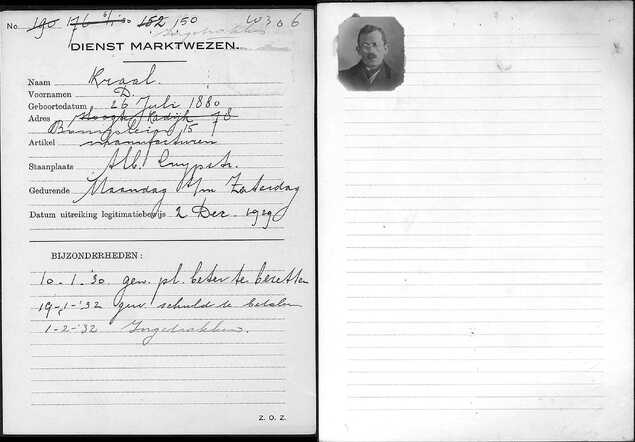 No. 190 176 152 150 W306
Ingetrokken
DIENST MARKTWEZEN.
Naam Kraal.
Voornamen D.
Geboortedatum 26 Juli 1880
Adres Hoogte Kadijk 78
15
Artikel manufacturen
Staanplaats Alb. Cuypstr.
Gedurende Maandag t/m Zaterdag
Datum uitreiking legitimatiebewijs 2 Dec. 1929
BIJZONDERHEDEN:
10-1-'30. gew. pl. beter te bezetten
19-1-'32 gew. schuld te betalen
1-2-'32 Ingetrokken.
Z. O. Z.